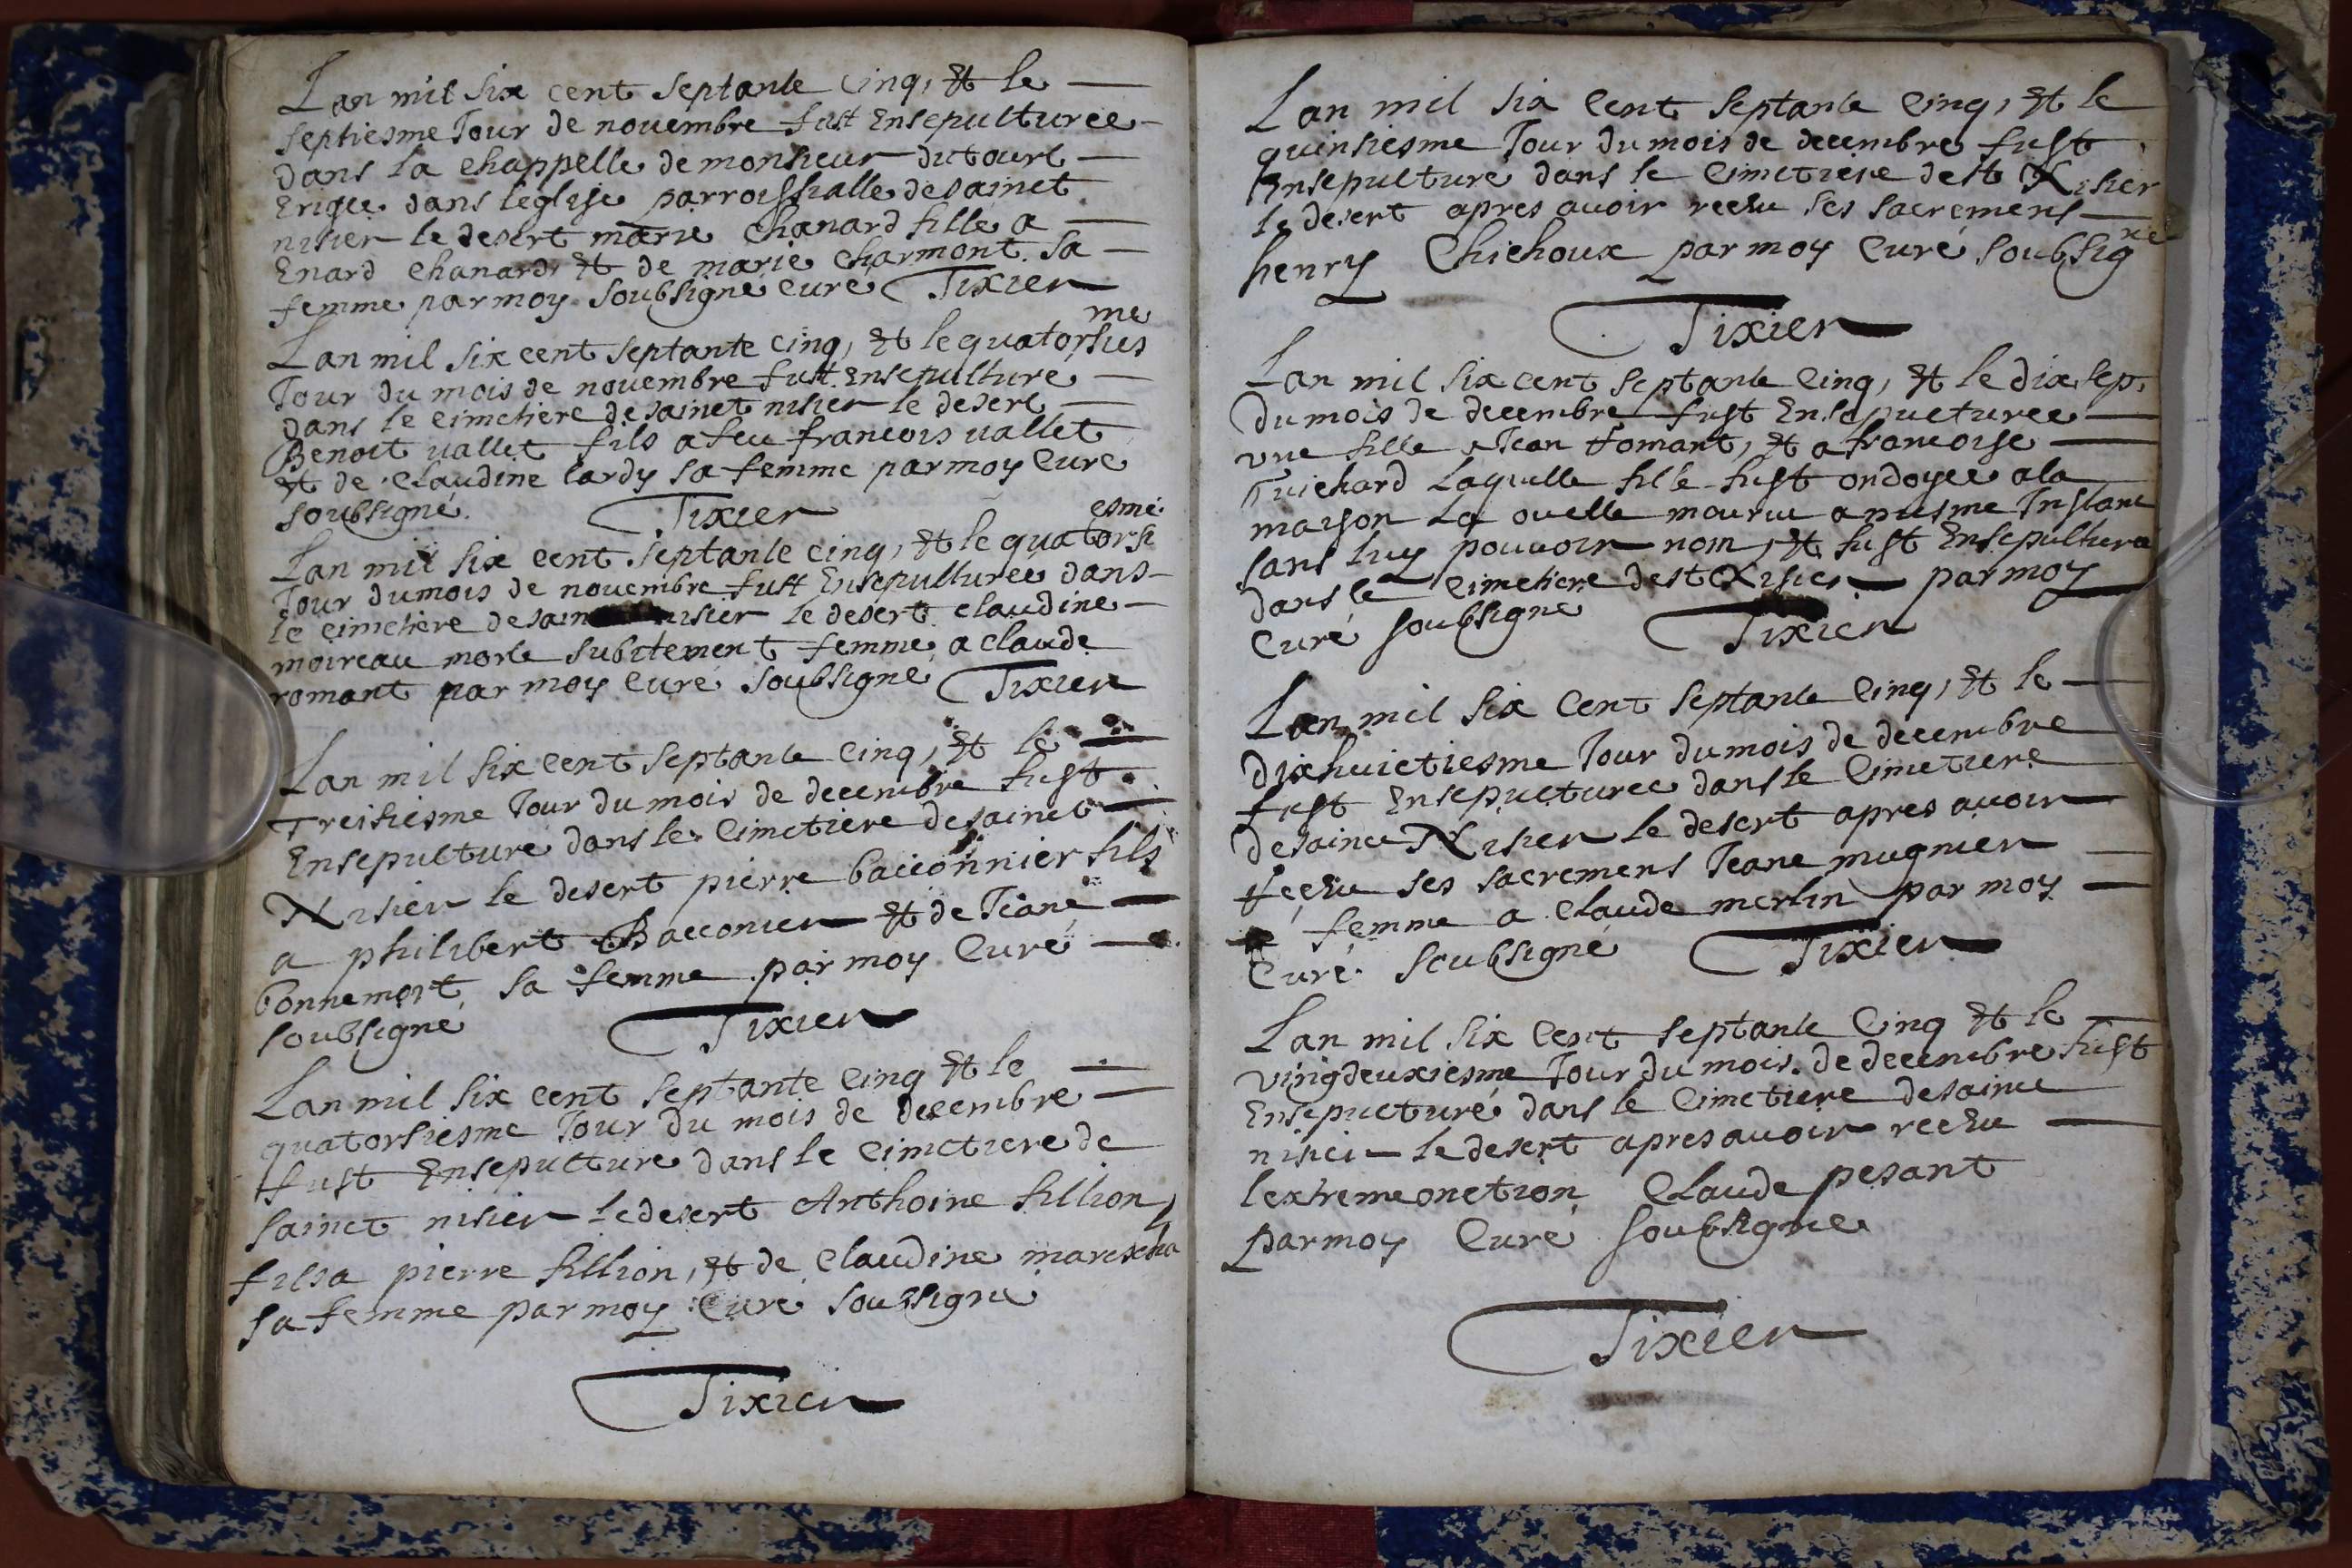 Lan mil six cent septante cinq, et le
septiesme Jour de novembre fust Ensepulturee
dans la chappelle de monsieur dutourt
Erigee dans leglise parroissialle de sainct
nisier le desert marie Chanard fille a
Enard chanard, et de marie Charmont sa
femme par moy soubsigné curé Tixier
Lan mil six cent septante cinq, et le quatorsies me
Jour du mois de novembre fust Ensepulture
dans le cimetiere de sainct nisier le desert
Benoit vallet fils a feu francois vallet
et de Claudine lardy sa femme par moy Curé
soubsigné. Tixier
Lan mil six cent septante cinq, et le quatorsi esme
Jour du mois de novembre fust Ensepulturee dans
le cimetiere de nisier le desert claudine
moireau morte subitement femme a claude
romant par moy curé soubsigné Tixier
Lan mil six cent septante cinq, et le
Treisiesme Jour du mois de decembre fust
Ensepulturé dans le Cimetiere de sainct
Nisier le desert pierre bacconnier fils
a philibert Bacconier et de Jeane
bonnemort sa femme par moy Curé
soubsigné Tixier
Lan mil six cent septante cinq et le
quatorsiesme Jour du mois de decembre
fust Ensepulture dans le Cimetiere de
sainct nisier le desert Anthoine fillion,
fils a pierre fillion, et de Claudine
sa femme par moy Curé soubsigné
Tixier
Lan mil six Cent septante Cinq, et le
quinsiesme Jour du mois de decembre fust
Ensepulturé dans le Cimetiere de st Nisier
le desert apres avoir receu ses sacremens
henry Chichoux par moy Curé soubsig né
Tixier
Lan mil six cent septante Cinq, et le dix sep.
du mois de decembre fust Ensepulturee
vne fille a Jean tomant, et a francoise
Guichard laquelle fille fust ondoyee a la
mayson la ouelle mourut Instant
sans luy pouvoir nom, et fust Ensepulturé
dans le Cimetiere de st Nisier par moy
Curé soubsigné Tixier
Lan mil six Cent septante Cinq, et le
dixhuictiesme Jour du mois de decembre
fust Ensepulturee dans le Cimetiere
de sainct Nisier le desert apres avoir
receu ses sacremens Jeane mugnier
femme a Claude merlin par moy
Curé soubsigné Tixier
Lan mil six Cent septante Cinq et le
vingdeuxiesme Jour du mois de decembre fust
Ensepulturé dans le Cimetiere de sainct
nisier le desert apres avoir receu
lextremeonction Claude pesant
par moy Curé soubsigné
Tixier